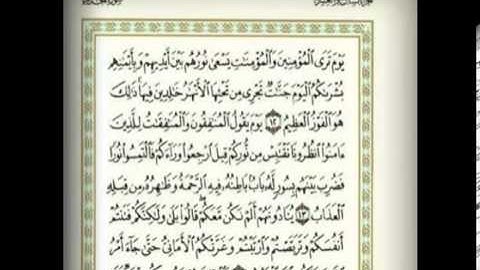 يَوْمَ تَرَى ٱلْمُؤْمِنِينَ وَٱلْمُؤْمِنَٰتِ يَسْعَىٰ نُورُهُم بَيْنَ أَيْدِيهِمْ وَبِأَيْمَٰنِهِم
بُشْرَىٰكُمُ ٱلْيَوْمَ جَنَّٰتٌ تَجْرِى مِن تَحْتِهَا ٱلْأَنْهَٰرُ خَٰلِدِينَ فِيهَا ذَٰلِكَ
هُوَ ٱلْفَوْزُ ٱلْعَظِيمُ ١٢ يَوْمَ يَقُولُ ٱلْمُنَٰفِقُونَ وَٱلْمُنَٰفِقَٰتُ لِلَّذِينَ
ءَامَنُوا۟ ٱنظُرُونَا نَقْتَبِسْ مِن نُّورِكُمْ قِيلَ ٱرْجِعُوا۟ وَرَآءَكُمْ فَٱلْتَمِسُوا۟ نُورًا
فَضُرِبَ بَيْنَهُم بِسُورٍ لَّهُۥ بَابٌۢ بَاطِنُهُۥ فِيهِ ٱلرَّحْمَةُ وَظَٰهِرُهُۥ مِن قِبَلِهِ
ٱلْعَذَابُ ١٣ يُنَادُونَهُمْ أَلَمْ نَكُن مَّعَكُمْ قَالُوا۟ بَلَىٰ وَلَٰكِنَّكُمْ فَتَنتُمْ
أَنفُسَكُمْ وَتَرَبَّصْتُمْ وَٱرْتَبْتُمْ وَغَرَّتْكُمُ ٱلْأَمَانِىُّ حَتَّىٰ جَآءَ أَمْرُ